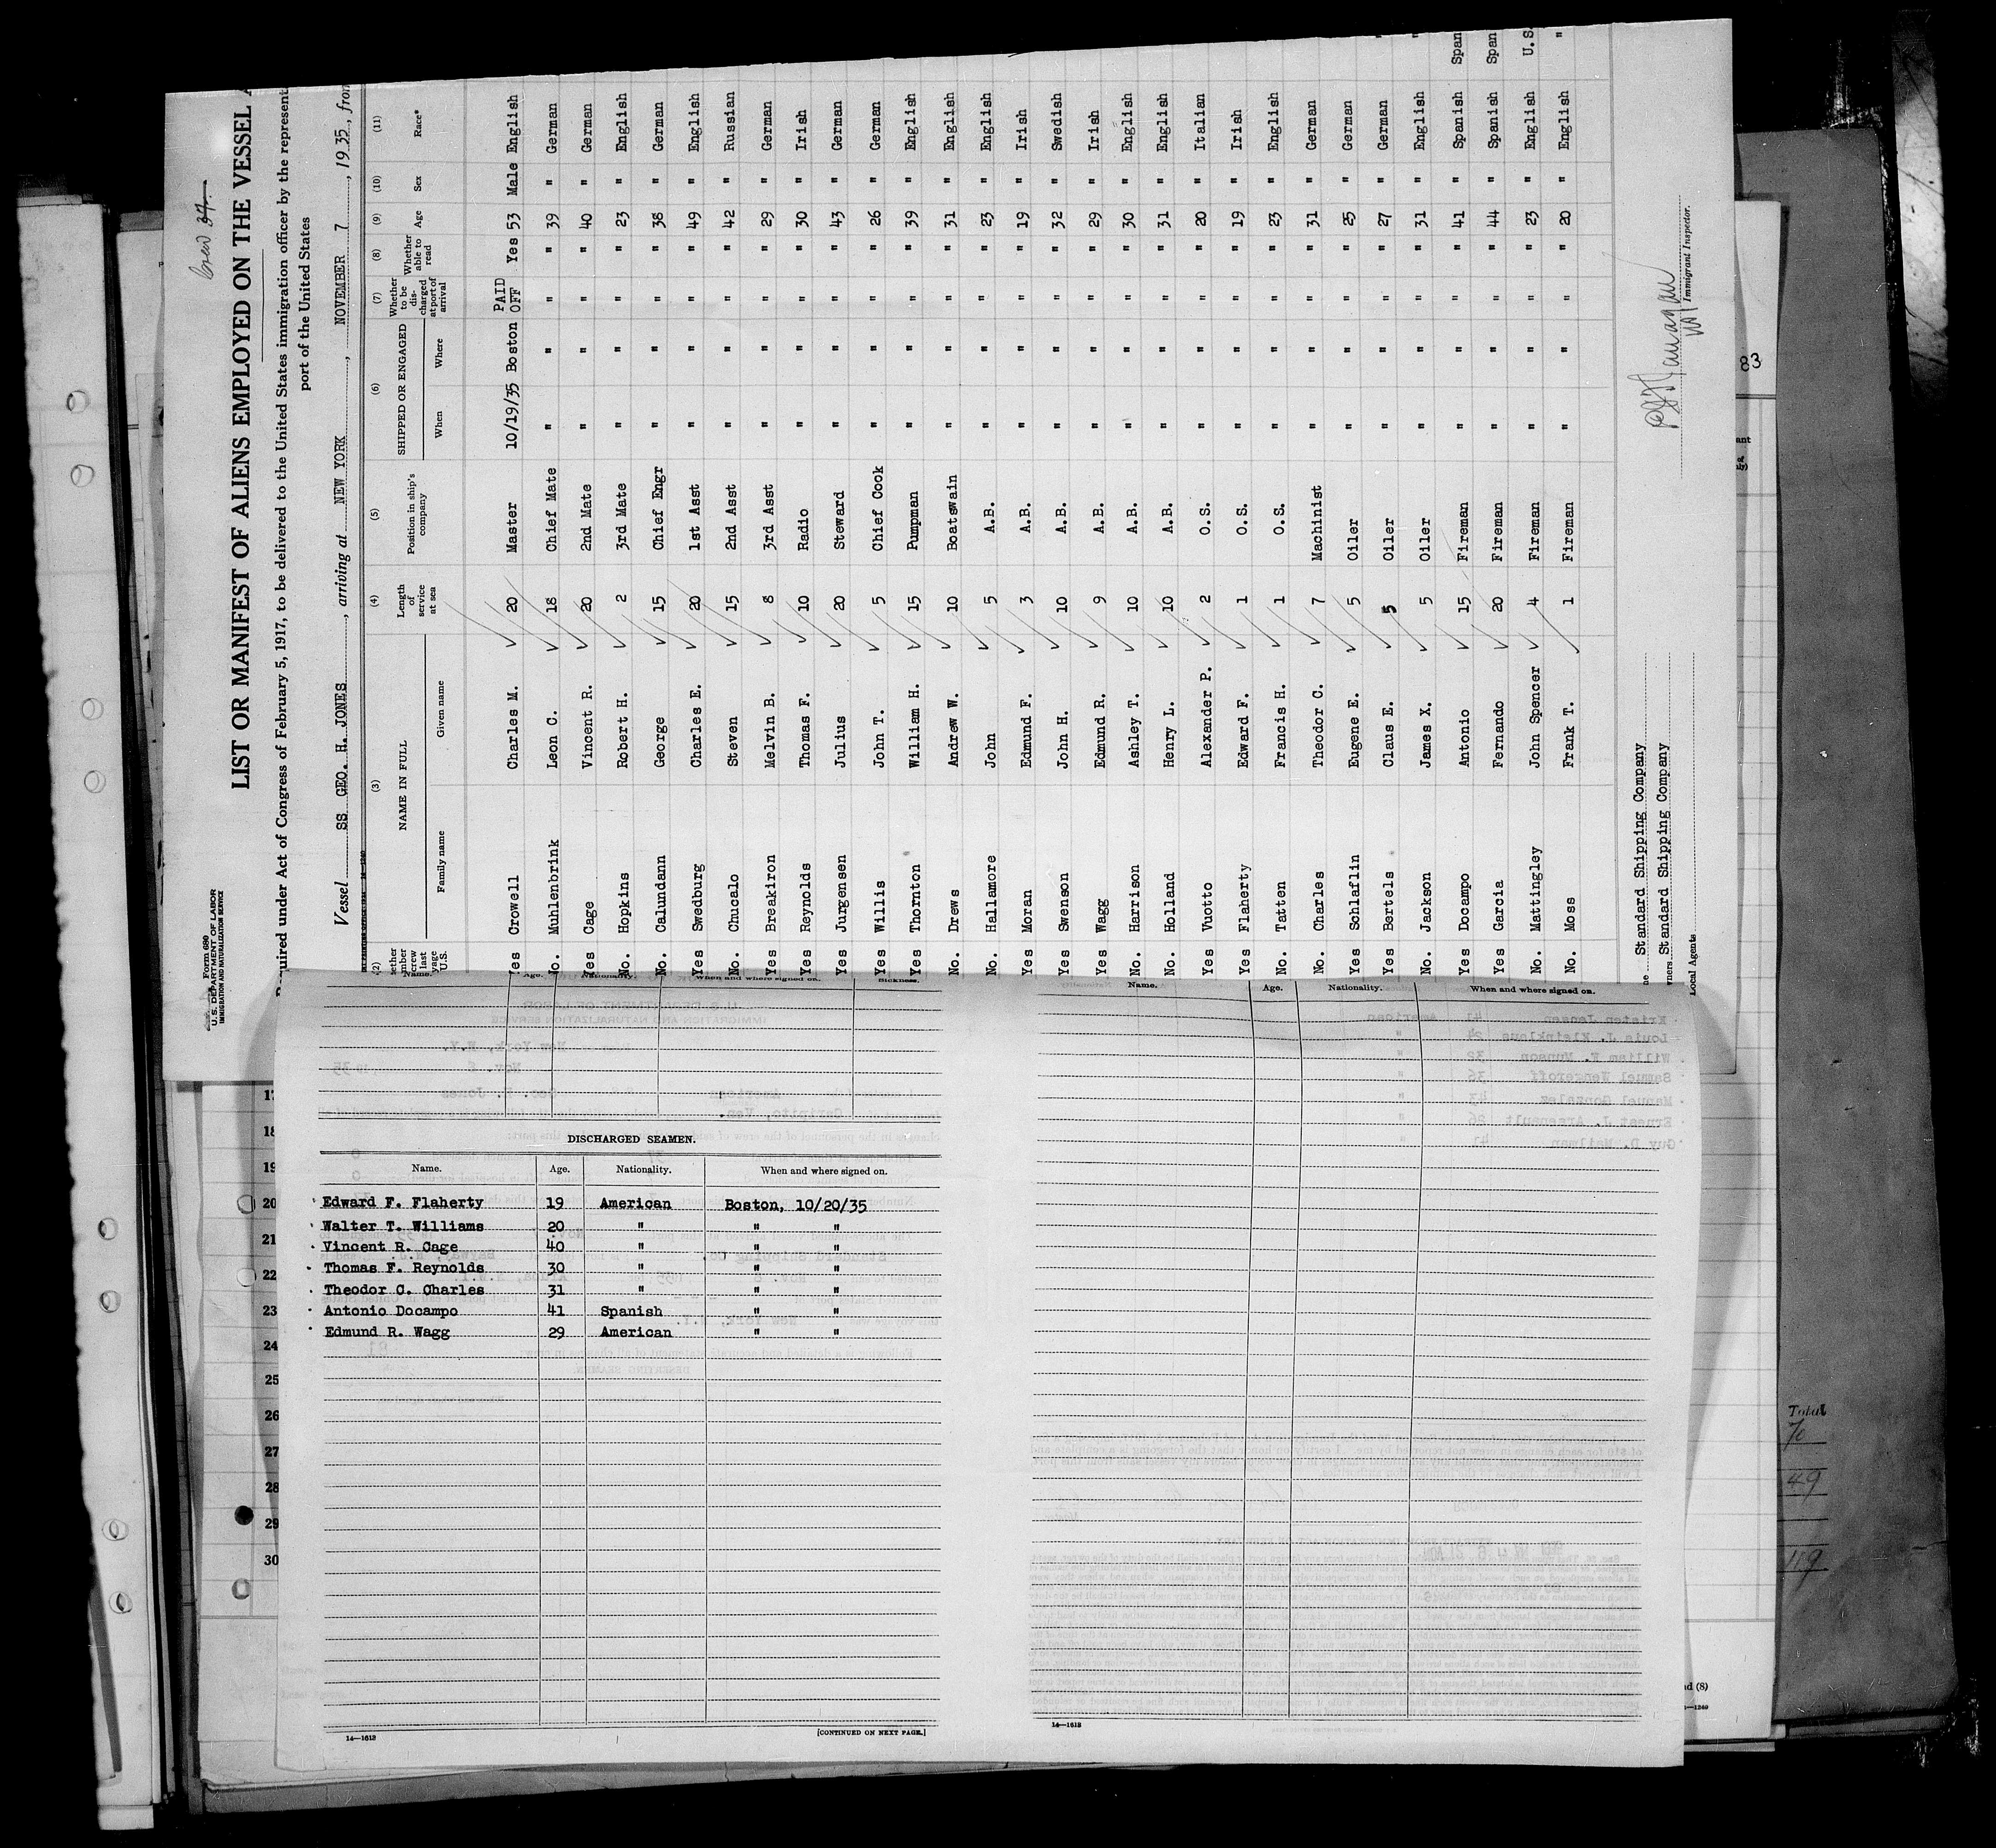 Crew 37.
Form 680
U. S. DEPARTMENT OF LABOR
IMMIGRATION AND NATURALIZATION SERVICE
LIST OR MANIFEST OF ALIENS EMPLOYED ON THE VESSEL
quired under Act of Congress of February 5, 1917, to be delivered to the United States immigration officer by the represent
port of the United States
Vessel SS GEO. H. JONES, arriving at NEW YORK, NOVEMBER 7, 1935, from
(2) (3) (4) (5) (6) (7) (8) (9) (10) (11)
NAME IN FULL Length of service at sea Position in ship's company SHIPPED OR ENGAGED Whether to be discharged at port of arrival Whether able to read Age Sex Race*
Family name Given name When Where
Yes Crowell Charles M. 20 Master 10/19/35 Boston PAID OFF Yes 53 Male English
No. Muhlenbrink Leon C. 18 Chief Mate " " " " 39 " German
Yes Cage Vincent R. 20 2nd Mate " " " " 40 " German
No. Hopkins Robert H. 2 3rd Mate " " " " 23 " English
No. Calundann George 15 Chief Engr " " " " 38 " German
Yes Swedburg Charles E. 20 1st Asst " " " " 49 " English
No. Chucalo Steven 15 2nd Asst " " " " 42 " Russian
Yes Breakiron Melvin B. 8 3rd Asst " " " " 29 " German
Yes Reynolds Thomas F. 10 Radio " " " " 30 " Irish
Yes Jurgensen Julius 20 Steward " " " " 43 " German
Yes Willis John T. 5 Chief Cook " " " " 26 " German
Yes Thornton William H. 15 Pumpman " " " " 39 " English
No. Drews Andrew W. 10 Boatswain " " " " 31 " English
No. Hallamore John 5 A.B. " " " " 23 " English
Yes Moran Edmund F. 3 A.B. " " " " 19 " Irish
Yes Swenson John H. 10 A.B. " " " " 32 " Swedish
Yes Wagg Edmund R. 9 A.B. " " " " 29 " Irish
No. Harrison Ashley T. 10 A.B. " " " " 30 " English
No. Holland Henry L. 10 A.B. " " " " 31 " English
Yes Vuotto Alexander P. 2 O.S. " " " " 20 " Italian
Yes Flaherty Edward F. 1 O.S. " " " " 19 " Irish
No. Tatten Francis H. 1 O.S. " " " " 23 " English
No. Charles Theodor C. 7 Machinist " " " " 31 " German
Yes Schlaflin Eugene E. 5 Oiler " " " " 25 " German
Yes Bertels Claus E. 5 Oiler " " " " 27 " German "
No. Jackson James X. 5 Oiler " " " " 31 " English "
Yes Docampo Antonio 15 Fireman " " " " 41 " Spanish Span
Yes Garcia Fernando 20 Fireman " " " " 44 " Spanish Span
No. Mattingley John Spencer 4 Fireman " " " " 23 " English U.S.
No. Moss Frank T. 1 Fireman " " " " 20 " English "
Standard Shipping Company
Standard Shipping Company
Local Agents
Immigrant Inspector.
83
Age. Nationality. When and where signed on. Sickness.
DISCHARGED SEAMEN.
Name. Age. Nationality. When and where signed on.
Edward F. Flaherty 19 American Boston, 10/20/35
Walter T. Williams 20 " " "
Vincent R. Cage 40 " " "
Thomas F. Reynolds 30 " " "
Theodor C. Charles 31 " " "
Antonio Docampo 41 Spanish " "
Edmund R. Wagg 29 American " "
14—1613
[CONTINUED ON NEXT PAGE.]
Name. Age. Nationality. When and where signed on.
14—1613
17
18
19
20
21
22
23
24
25
26
27
28
29
30
Total
70
49
119
nd (8)
—1240